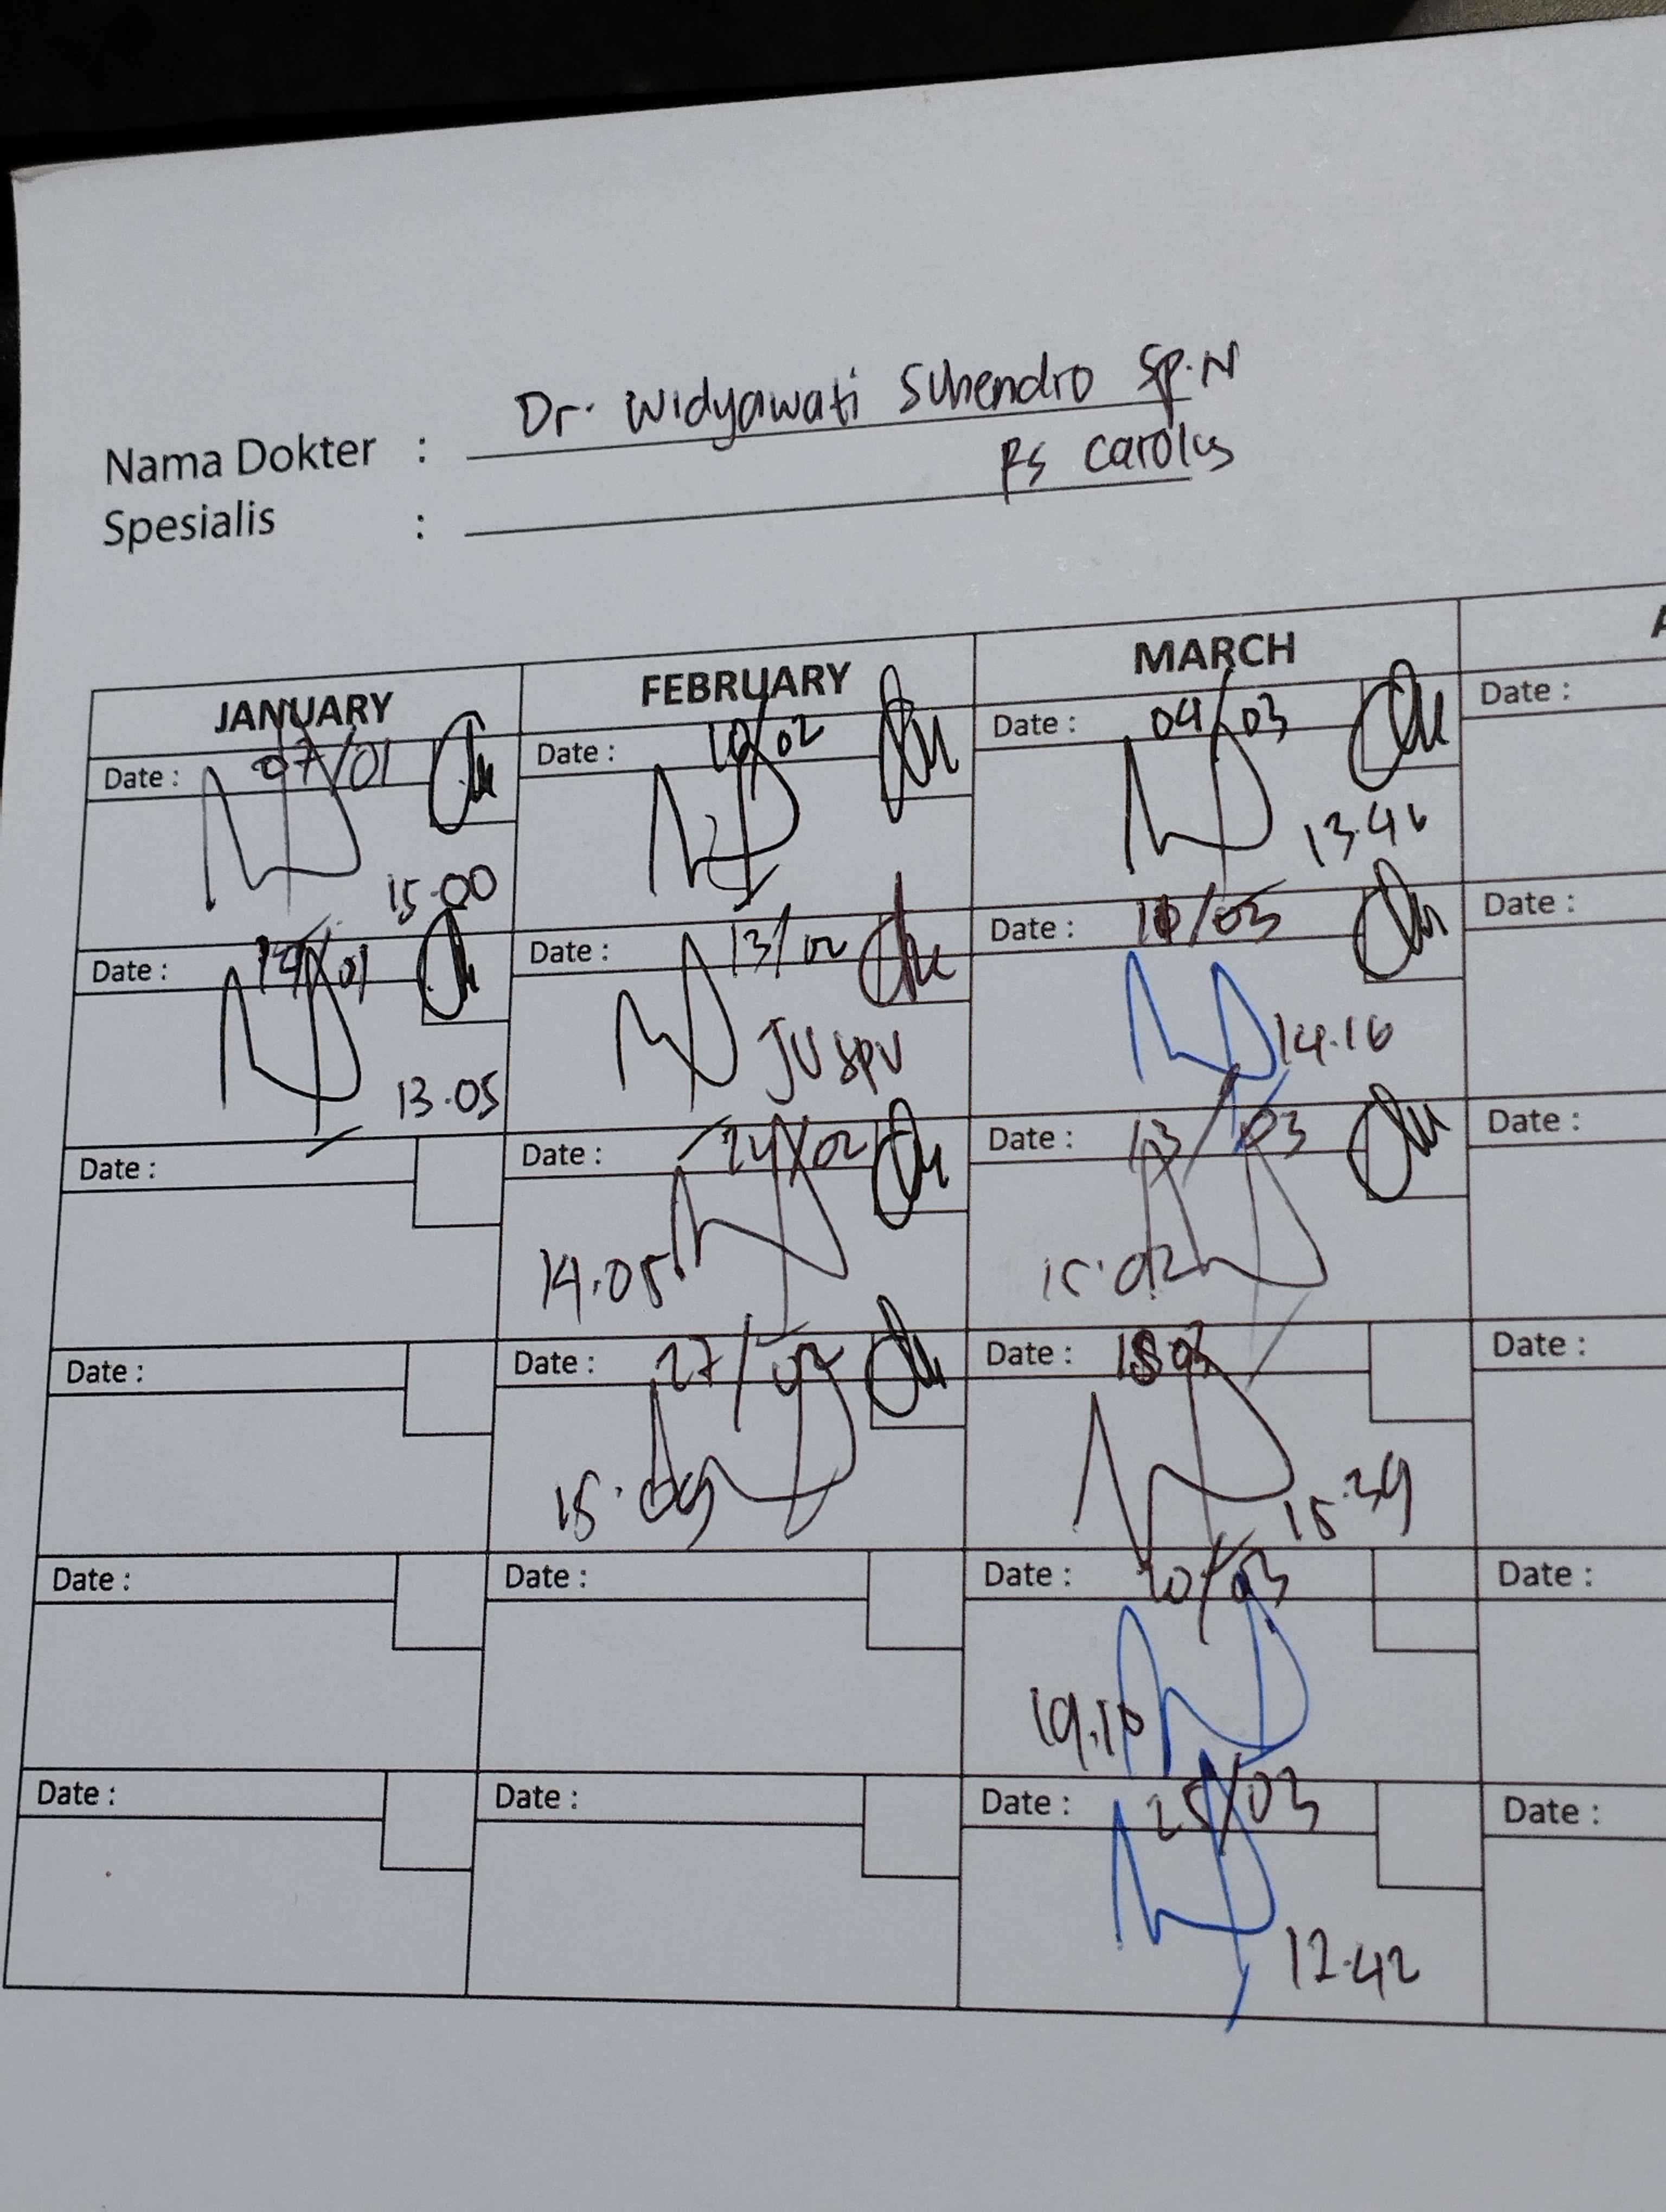 Dr. Widyawati Suhendro Sp.N
Nama Dokter :
RS Carolus
Spesialis :
JANUARY FEBRUARY MARCH
Date : 07/01 Date : 10/02 Date : 04/03 Date :
15.00 13.46
Date : 14/01 Date : 13/02 Date : 10/03 Date :
13.05 JV SPV 14.16
Date : Date : 24/02 Date : 13/03 Date :
14.05 15.02
Date : Date : 27/02 Date : 18 03 Date :
15.09 15.39
Date : Date : Date : 20/03 Date :
Date : Date : Date : 25/03 Date :
12.42